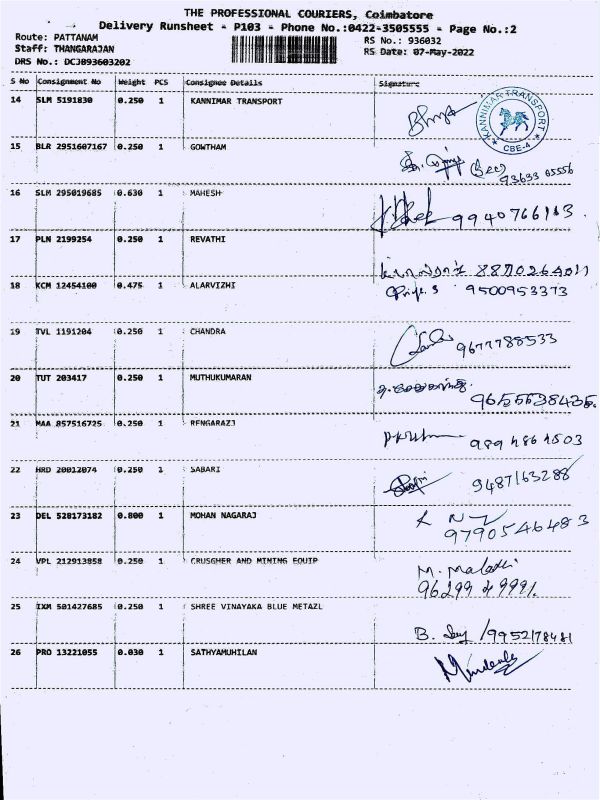 THE PROFESSIONAL COURIERS, Coimbatore
Delivery Runsheet - P103 - Phone No.:0422-3505555 - Page No.:2
Route: PATTANAM RS No.: 936032
Staff: THANGARAJAN RS Date: 07-May-2022
DRS No.: DCJ093603202
S No Consignment No Weight PCS Consignee Details Signature
14 SLM 5191830 0.250 1 KANNIMAR TRANSPORT
KANNIMAR TRANSPORT CBE-4
15 BLR 2951607167 0.250 1 GOWTHAM
93633 05556
16 SLM 295019685 0.630 1 MAHESH
9940766113
17 PLN 2199254 0.250 1 REVATHI
8870264011
18 KCM 12454100 0.475 1 ALARVIZHI
Priya.S 9500953373
19 TVL 1191204 0.250 1 CHANDRA
9677788533
20 TUT 203417 0.250 1 MUTHUKUMARAN
9655638435
21 MAA 857516725 0.250 1 RENGARAZJ
22 HRD 20012074 0.250 1 SABARI
9487163288
23 DEL 528173182 0.800 1 MOHAN NAGARAJ
9790546483
24 VPL 212913858 0.250 1 CRUSGHER AND MINING EQUIP
M. Malathi
25 IXM 501427685 0.250 1 SHREE VINAYAKA BLUE METAZL
B. /9952178481
26 PRO 13221055 0.030 1 SATHYAMUHILAN